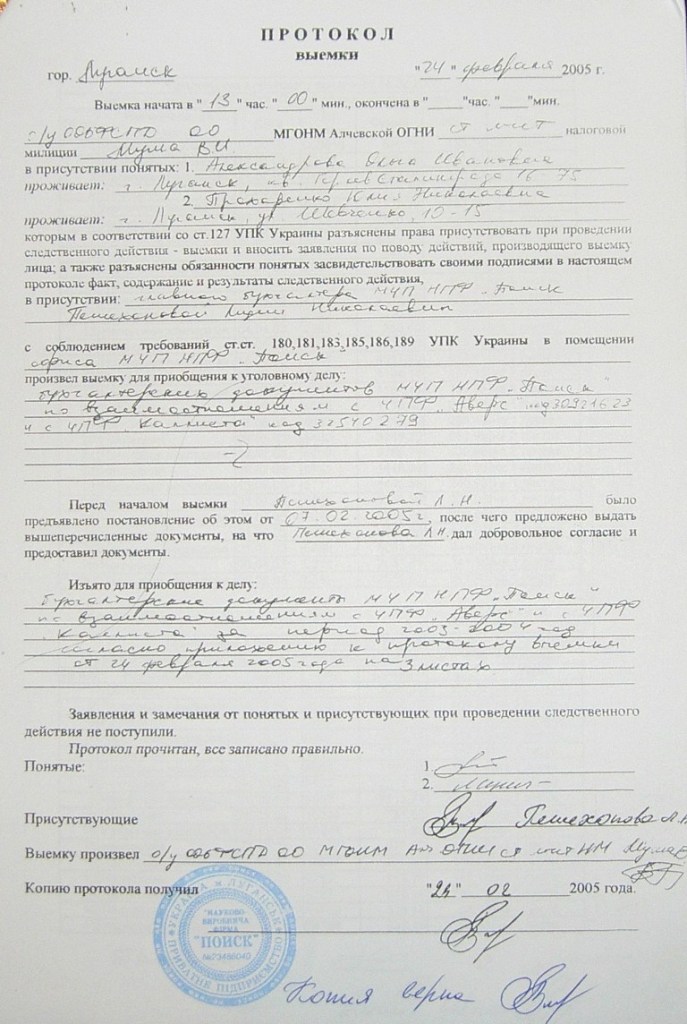 ПРОТОКОЛ
выемки
гор. Луганск "24" февраля 2005 г.
Выемка начата в "13" час. "00" мин., окончена в "____"час. "____"мин.
МГОНМ Алчевской ОГНИ налоговой
милиции Мума В.И.
в присутствии понятых: 1. Александрова Ольга Ивановна
проживает: г. Луганск, кв. Героев Сталинграда 16 - 75
2. Прохаренко Юлия Николаевна
проживает: г. Луганск, ул. Шевченко, 10-15
которым в соответствии со ст.127 УПК Украины разъяснены права присутствовать при проведении
следственного действия - выемки и вносить заявления по поводу действий, производящего выемку
лица; а также разъяснены обязанности понятых засвидетельствовать своими подписями в настоящем
протоколе факт, содержание и результаты следственного действия,
в присутствии: главного бухгалтера МЧП НПФ „Поиск"
Пешеховой Лидии Николаевич
с соблюдением требований ст.ст. 180,181,183,185,186,189 УПК Украины в помещении
офиса МЧП НПФ „Поиск"
произвел выемку для приобщения к уголовному делу:
бухгалтерских документов МЧП НПФ „Поиск"
по взаимоотношениям с ЧПФ „Аверс" код 30921623
и с ЧПФ „Каллиста" код 32540279
Перед началом выемки Пешехоновой Л.Н. было
предъявлено постановление об этом от 07.02.2005г, после чего предложено выдать
вышеперечисленные документы, на что Пешехонова Л.Н. дал добровольное согласие и
предоставил документы.
Изъято для приобщения к делу:
бухгалтерские документы МЧП НПФ „Поиск"
по взаимоотношениям с ЧПФ „Аверс" и с ЧПФ
„Каллиста" за период 2003-2004 год
согласно приложению к протоколу выемки
от 24 февраля 2005 года на 3 листах
Заявления и замечания от понятых и присутствующих при проведении следственного
действия не поступили.
Протокол прочитан, все записано правильно.
Понятые: 1.
2.
Присутствующие Пешехонова Л.Н.
Выемку произвел МГОНМ
Копию протокола получил "24" 02 2005 года.
УКРАЇНА м ЛУГАНСЬК
ПРИВАТНЕ ПІДПРИЄМСТВО
"НАУКОВО
ВИРОБНИЧА
ФІРМА
"ПОИСК"
Копия верна